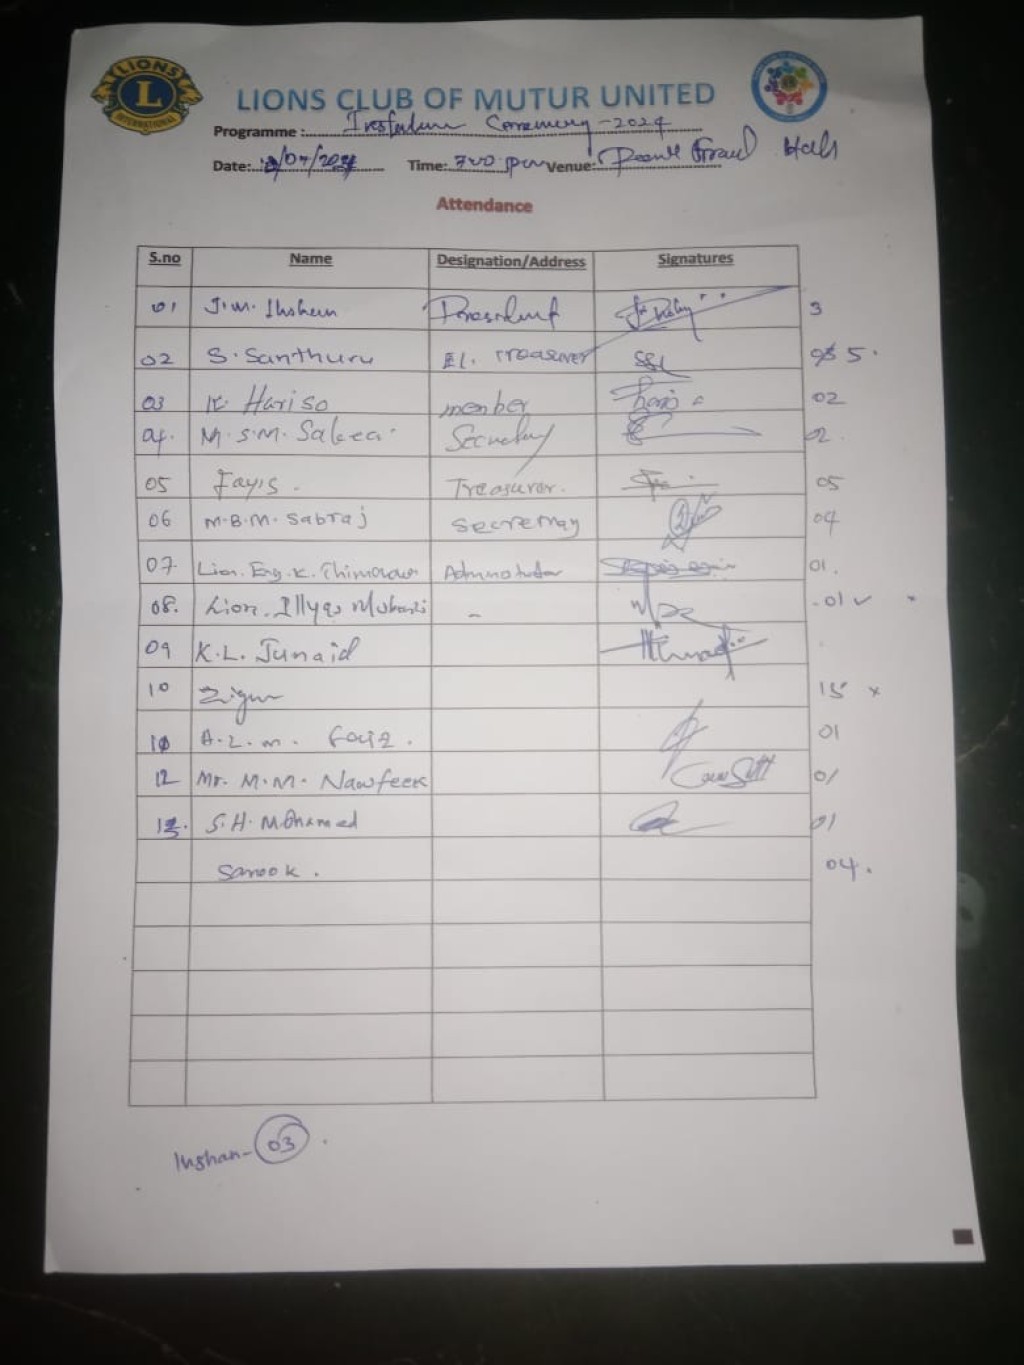 LIONS INTERNATIONAL
L
LIONS CLUB OF MUTUR UNITED
Programme : Ceremony - 2024
Date: /07/2024 Time: 7.00 pm Venue:
Attendance
S.no Name Designation/Address Signatures
01 J.M. Ihsham President 3
02 S. Santhuru El. Treasurer 5.
03 K. Hariso member 02
04. M.S.M. Secretary 02.
05 Fayis. Treasurer. 05
06 M.B.M. Sabraj Secretray 04
07. Lion. Eng. K. 01.
08. Lion. Illyas - 01 ✓
09 K.L. Junaid
10 15 x
10 A.L.M. Faiz. 01
12 Mr. M.M. Nawfeek 01
13. S.H. Mohamed 01
Sanook. 04.
Inshan - 03